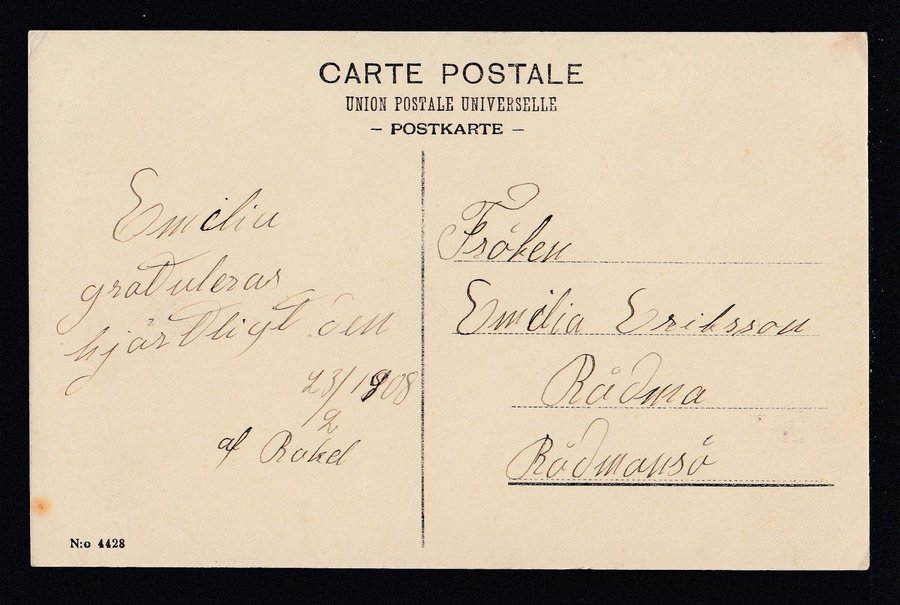 CARTE POSTALE
UNION POSTALE UNIVERSELLE
– POSTKARTE –
Emilia
gratuleras
hjärtligt den
23/2 1908
af
Fröken
Emilia Eriksson
Rådma
Rådmansö
N:o 4428